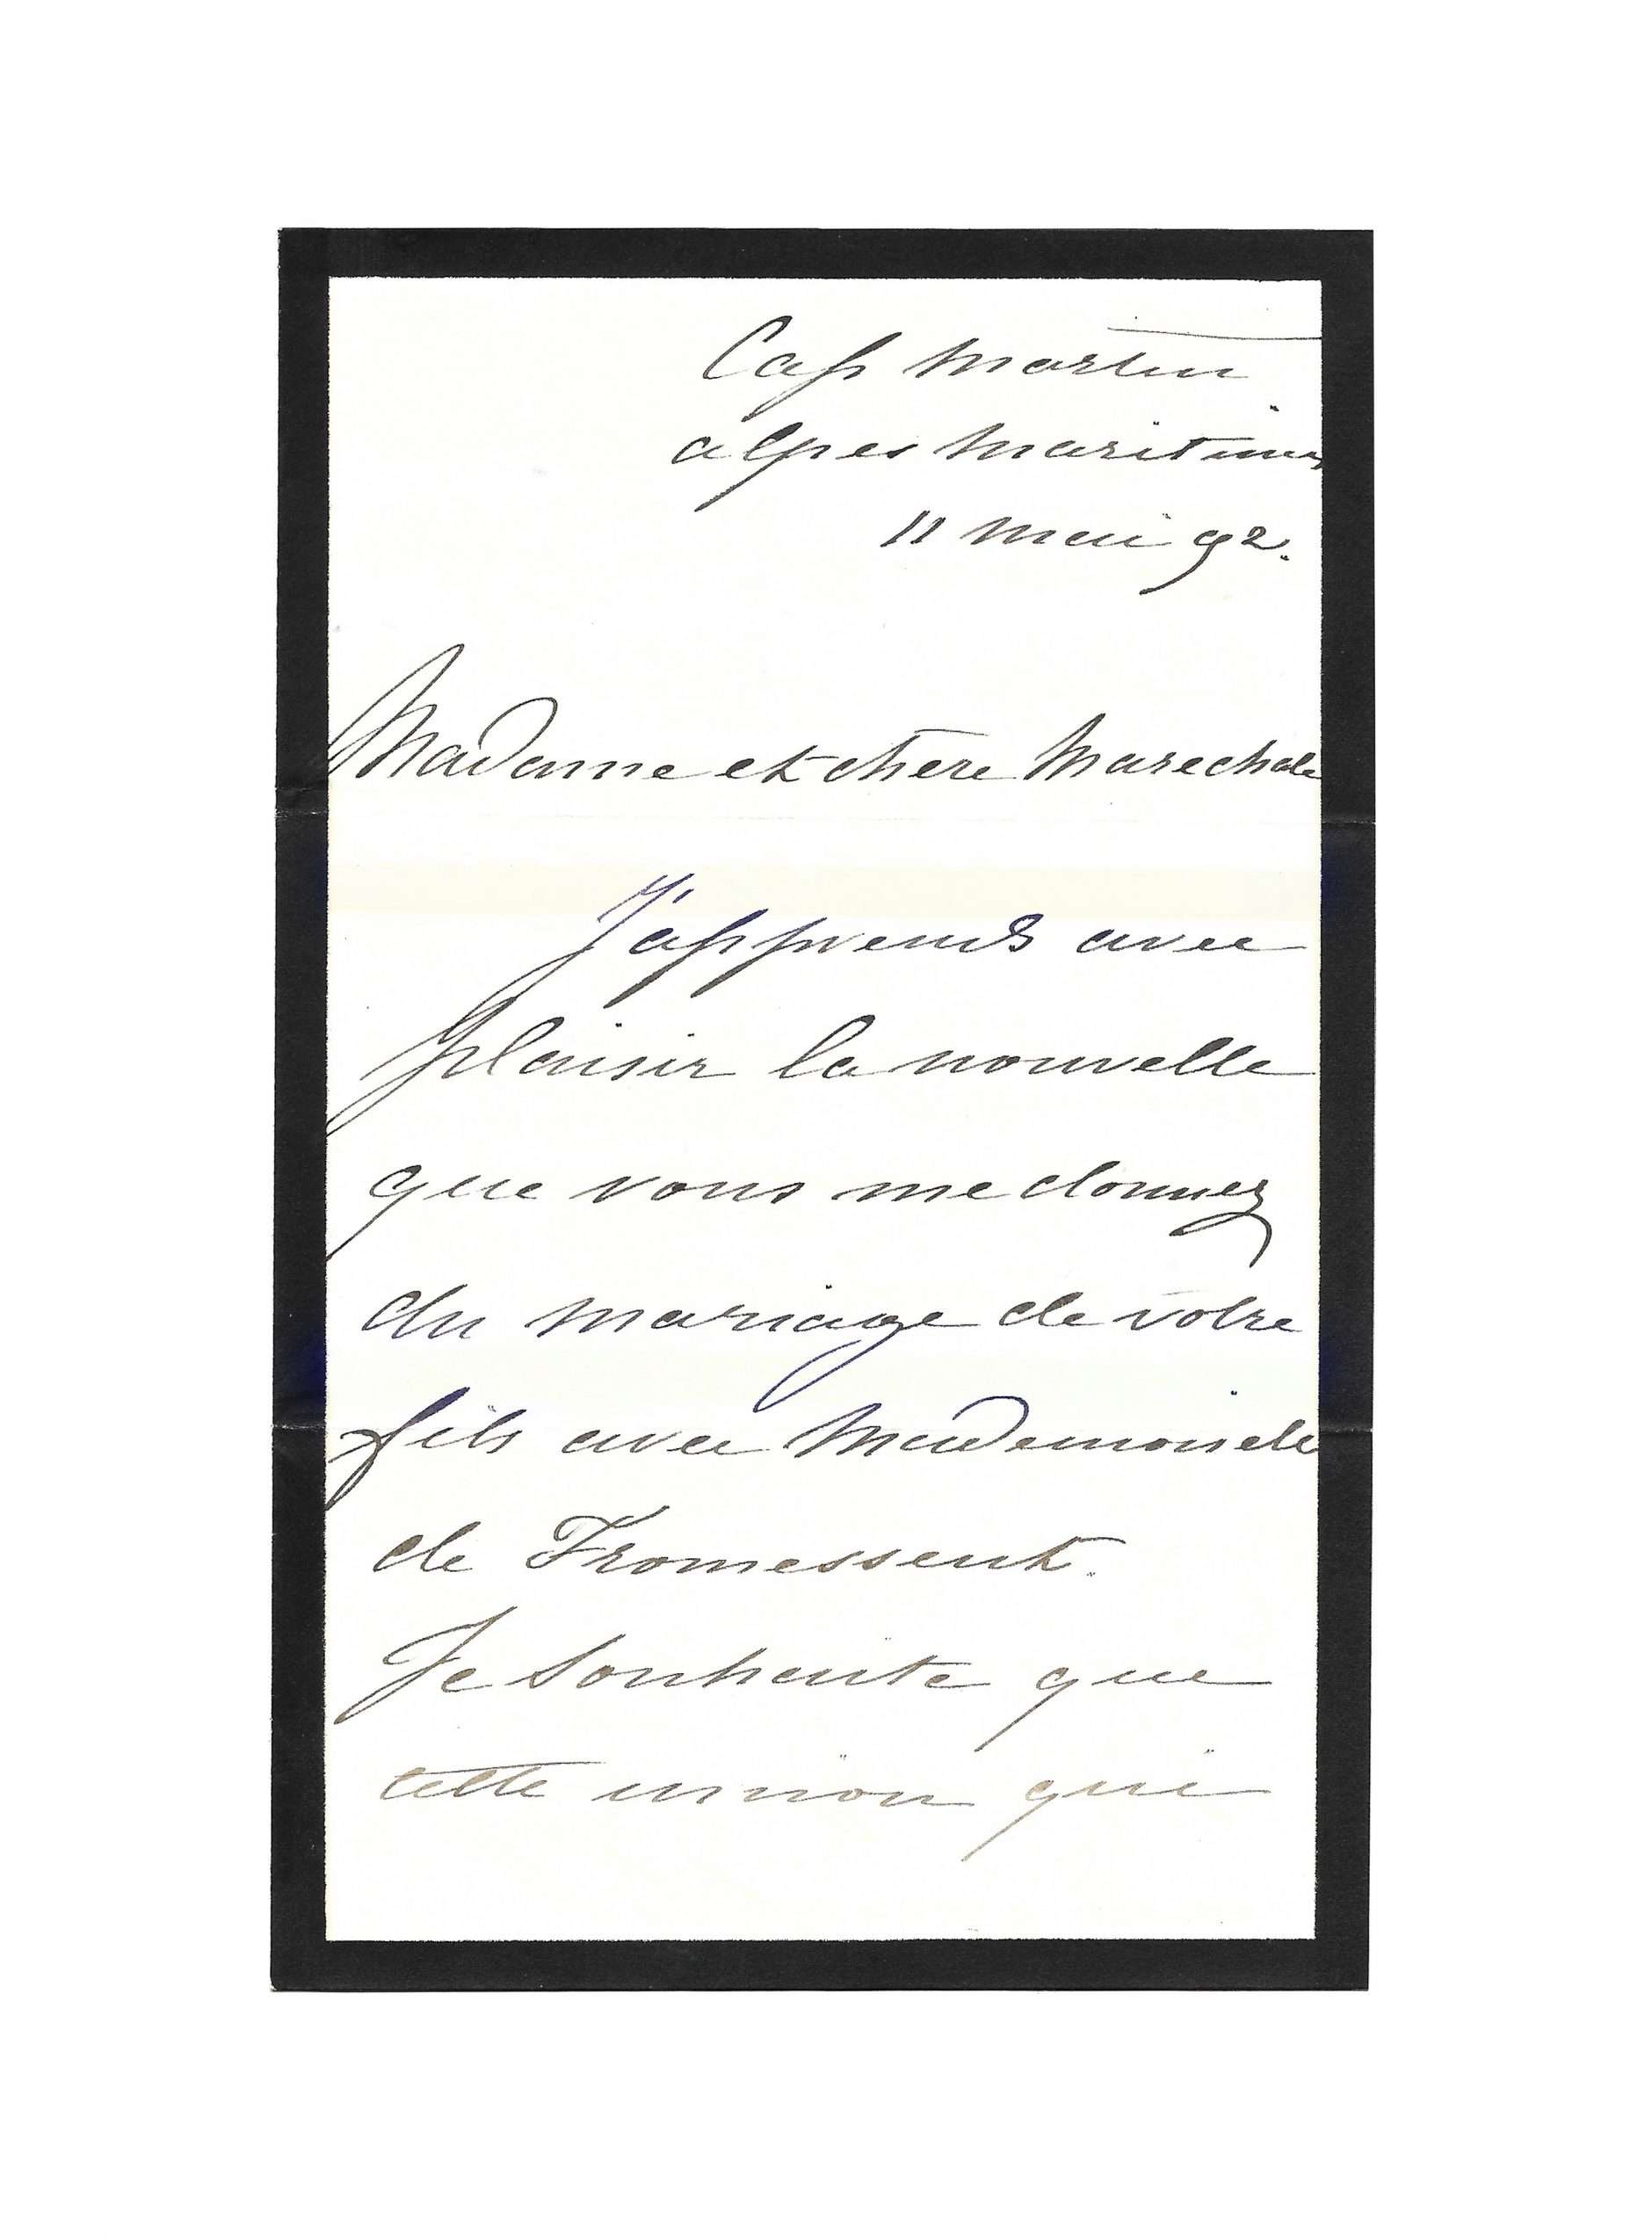 Cap Martin
alpes Maritimes
11 Mai 92.
Madame et chere Marechale
J'apprends avec
plaisir la nouvelle
que vous me donnez
du mariage de votre
fils avec Mademoiselle
de Fromessent.
Je souhaite que
cette union qui